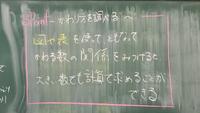 かわり方を調べる
図や表を使って ともなって
かわる数の関係をみつけると
大きい数でも計算で求めることが
できる